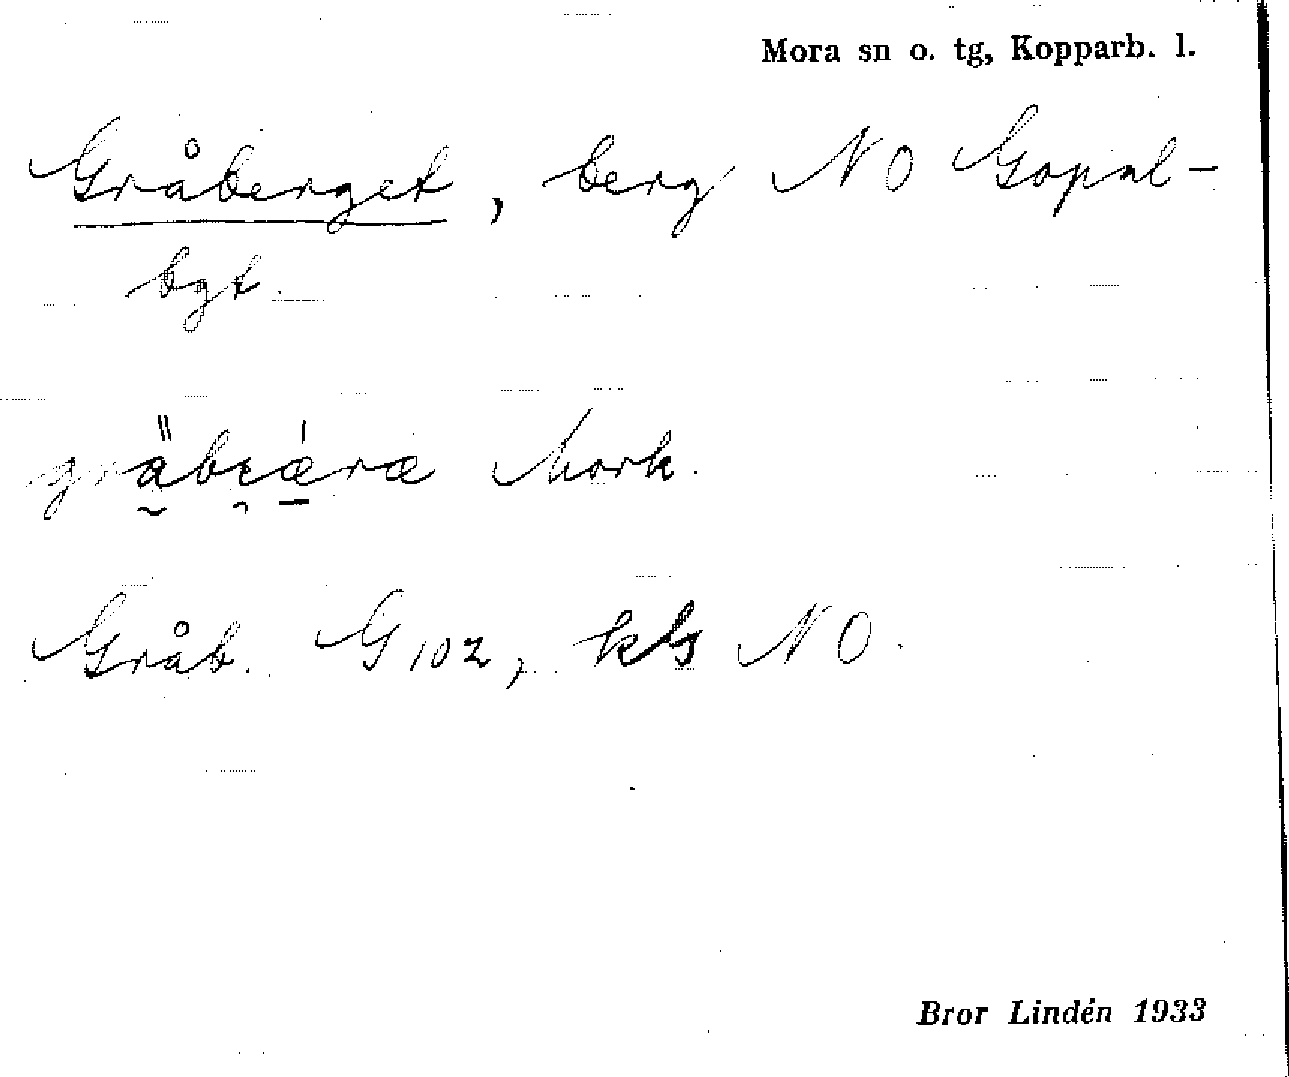 Mora sn o. tg, Kopparb. l.
Gråberget, berg NO Gopal-
bgt.
Mork.
Gråb. G 102, kls NO.
Bror Lindén 1933